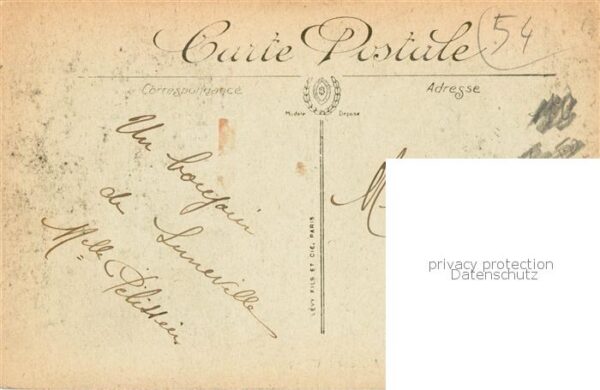 Carte Postale
54
Correspondance
Adresse
Modèle Déposé
Un bonjour
de Luneville
Mlle Pélissier
LÉVY FILS ET CIE, PARIS
M
privacy protection
Datenschutz